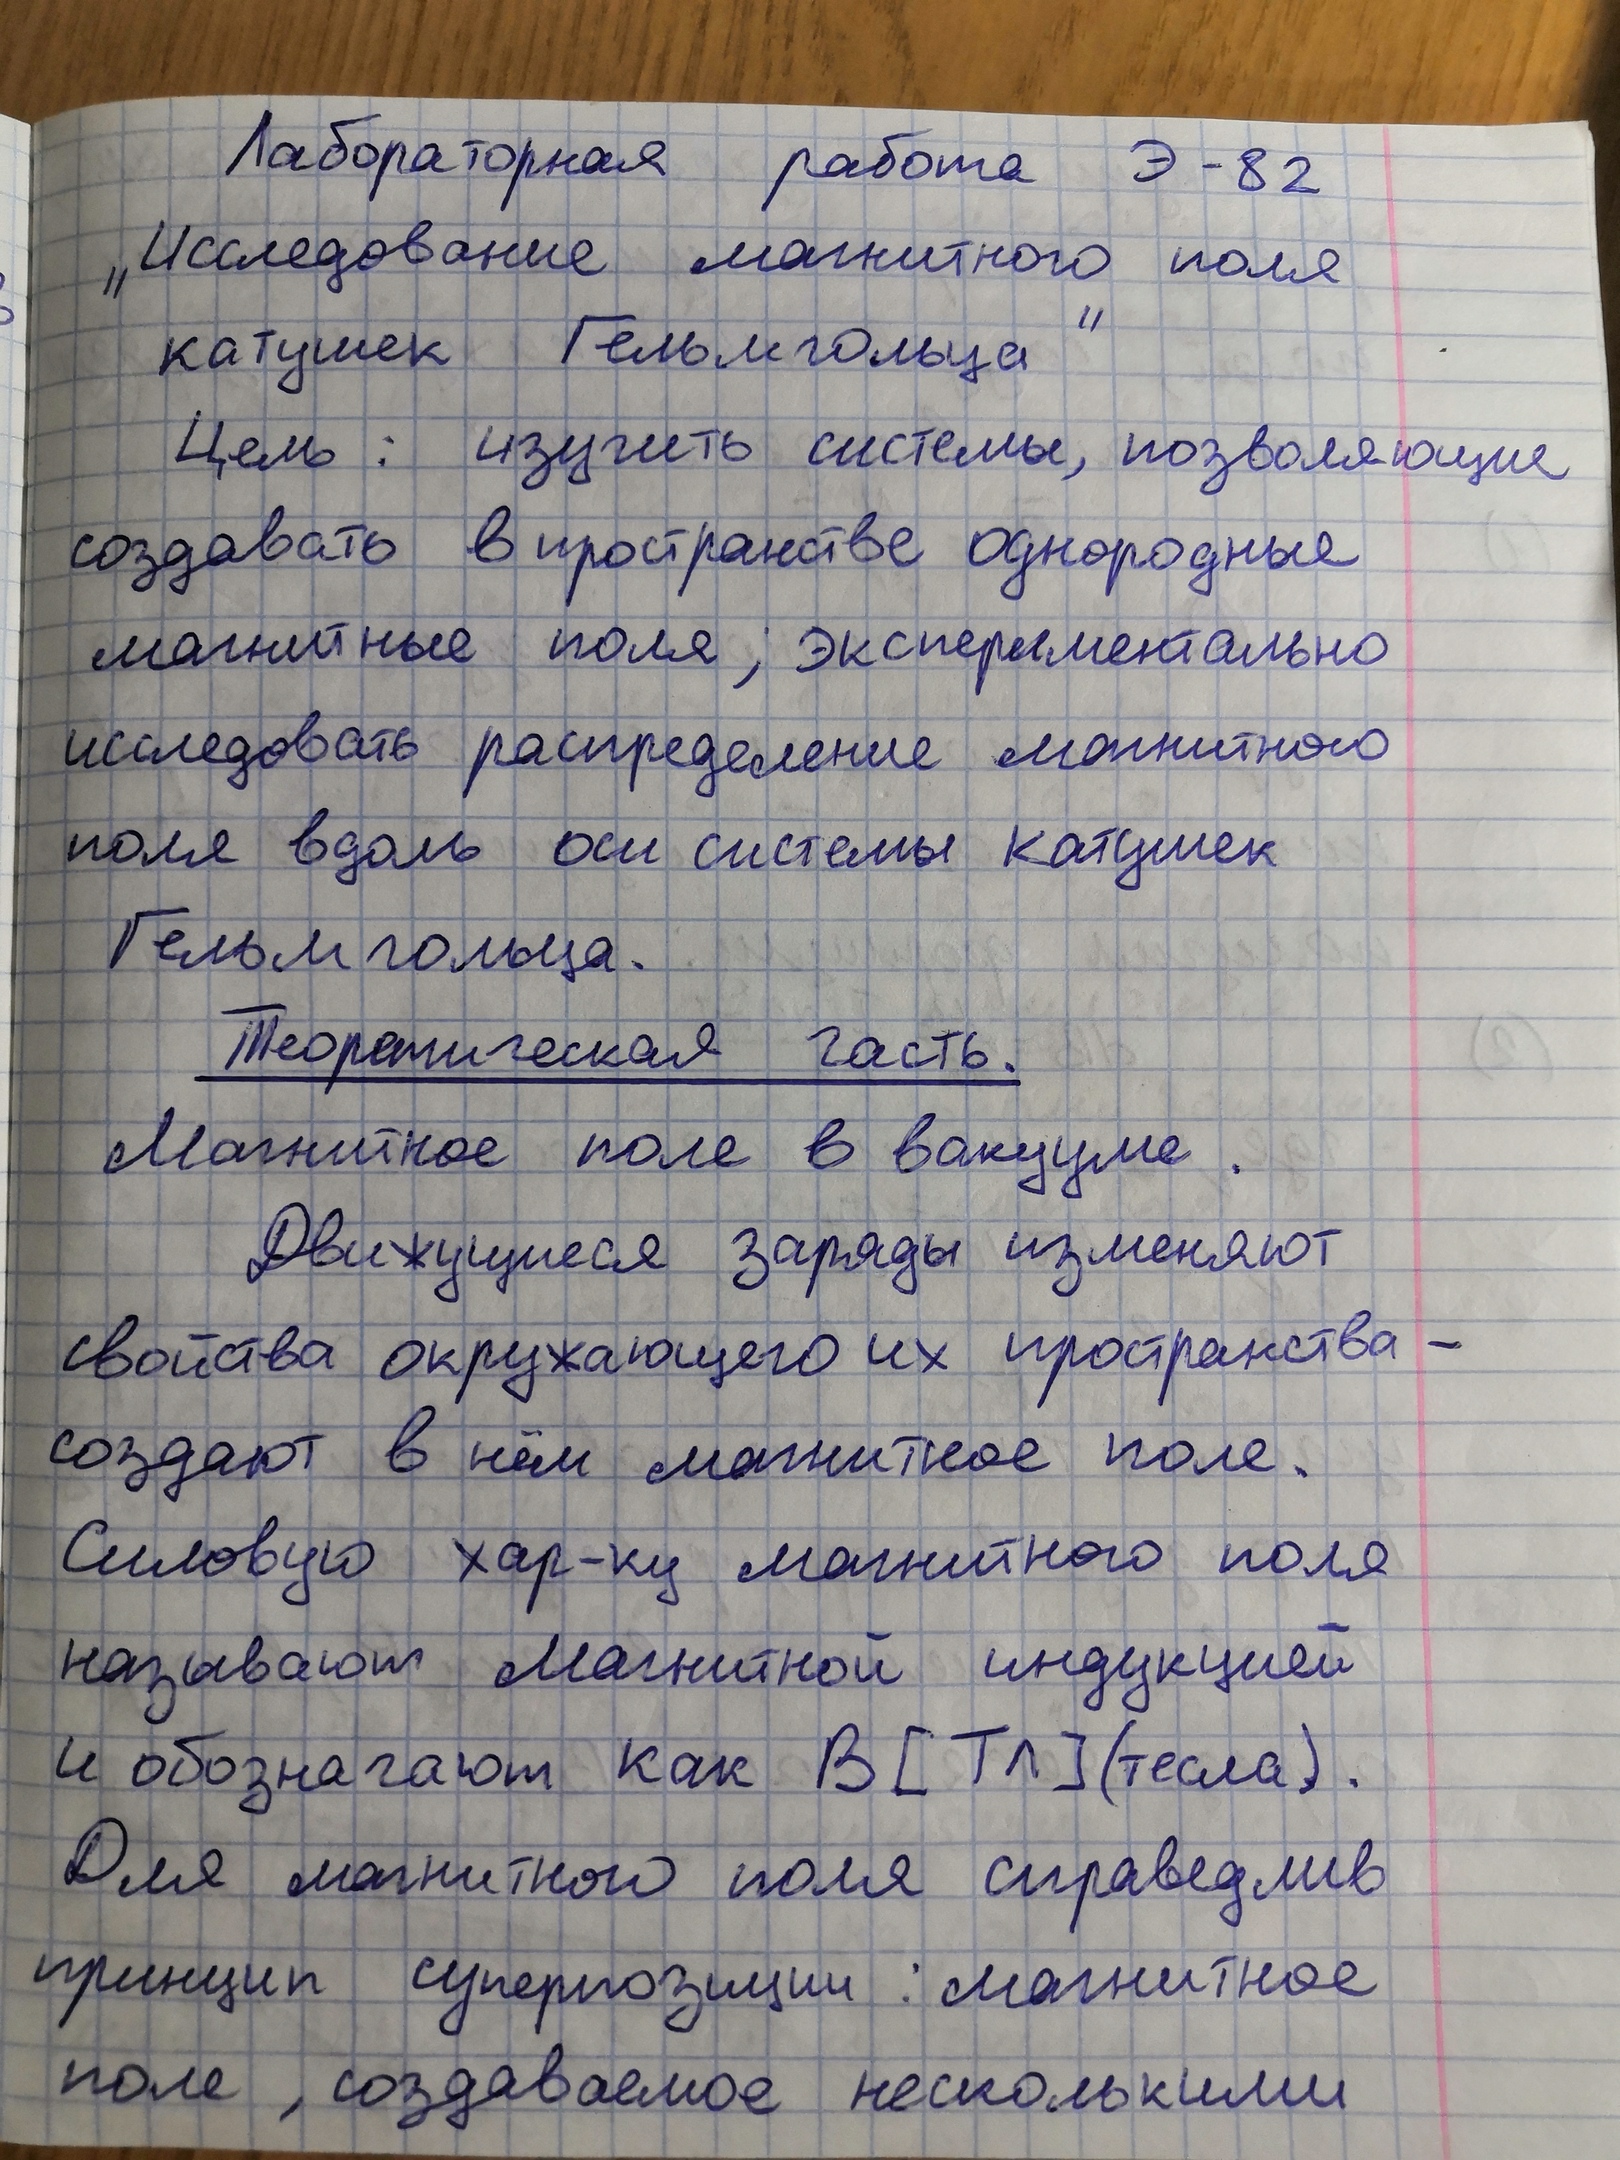 Лабораторная работа Э-82
„Исследование магнитного поля
катушек Гельмгольца"
Цель: изучить системы, позволяющие
создавать в пространстве однородные
магнитные поля; экспериментально
исследовать распределение магнитного
поля вдоль оси системы катушек
Гельмгольца.
Теоретическая часть.
Магнитное поле в вакууме.
Движущиеся заряды изменяют
свойства окружающего их пространства -
создают в нём магнитное поле.
Силовую хар-ку магнитного поля
называют магнитной индукцией
и обозначают как В [Тл] (тесла).
Для магнитного поля справедлив
принцип суперпозиции: магнитное
поле, создаваемое несколькими